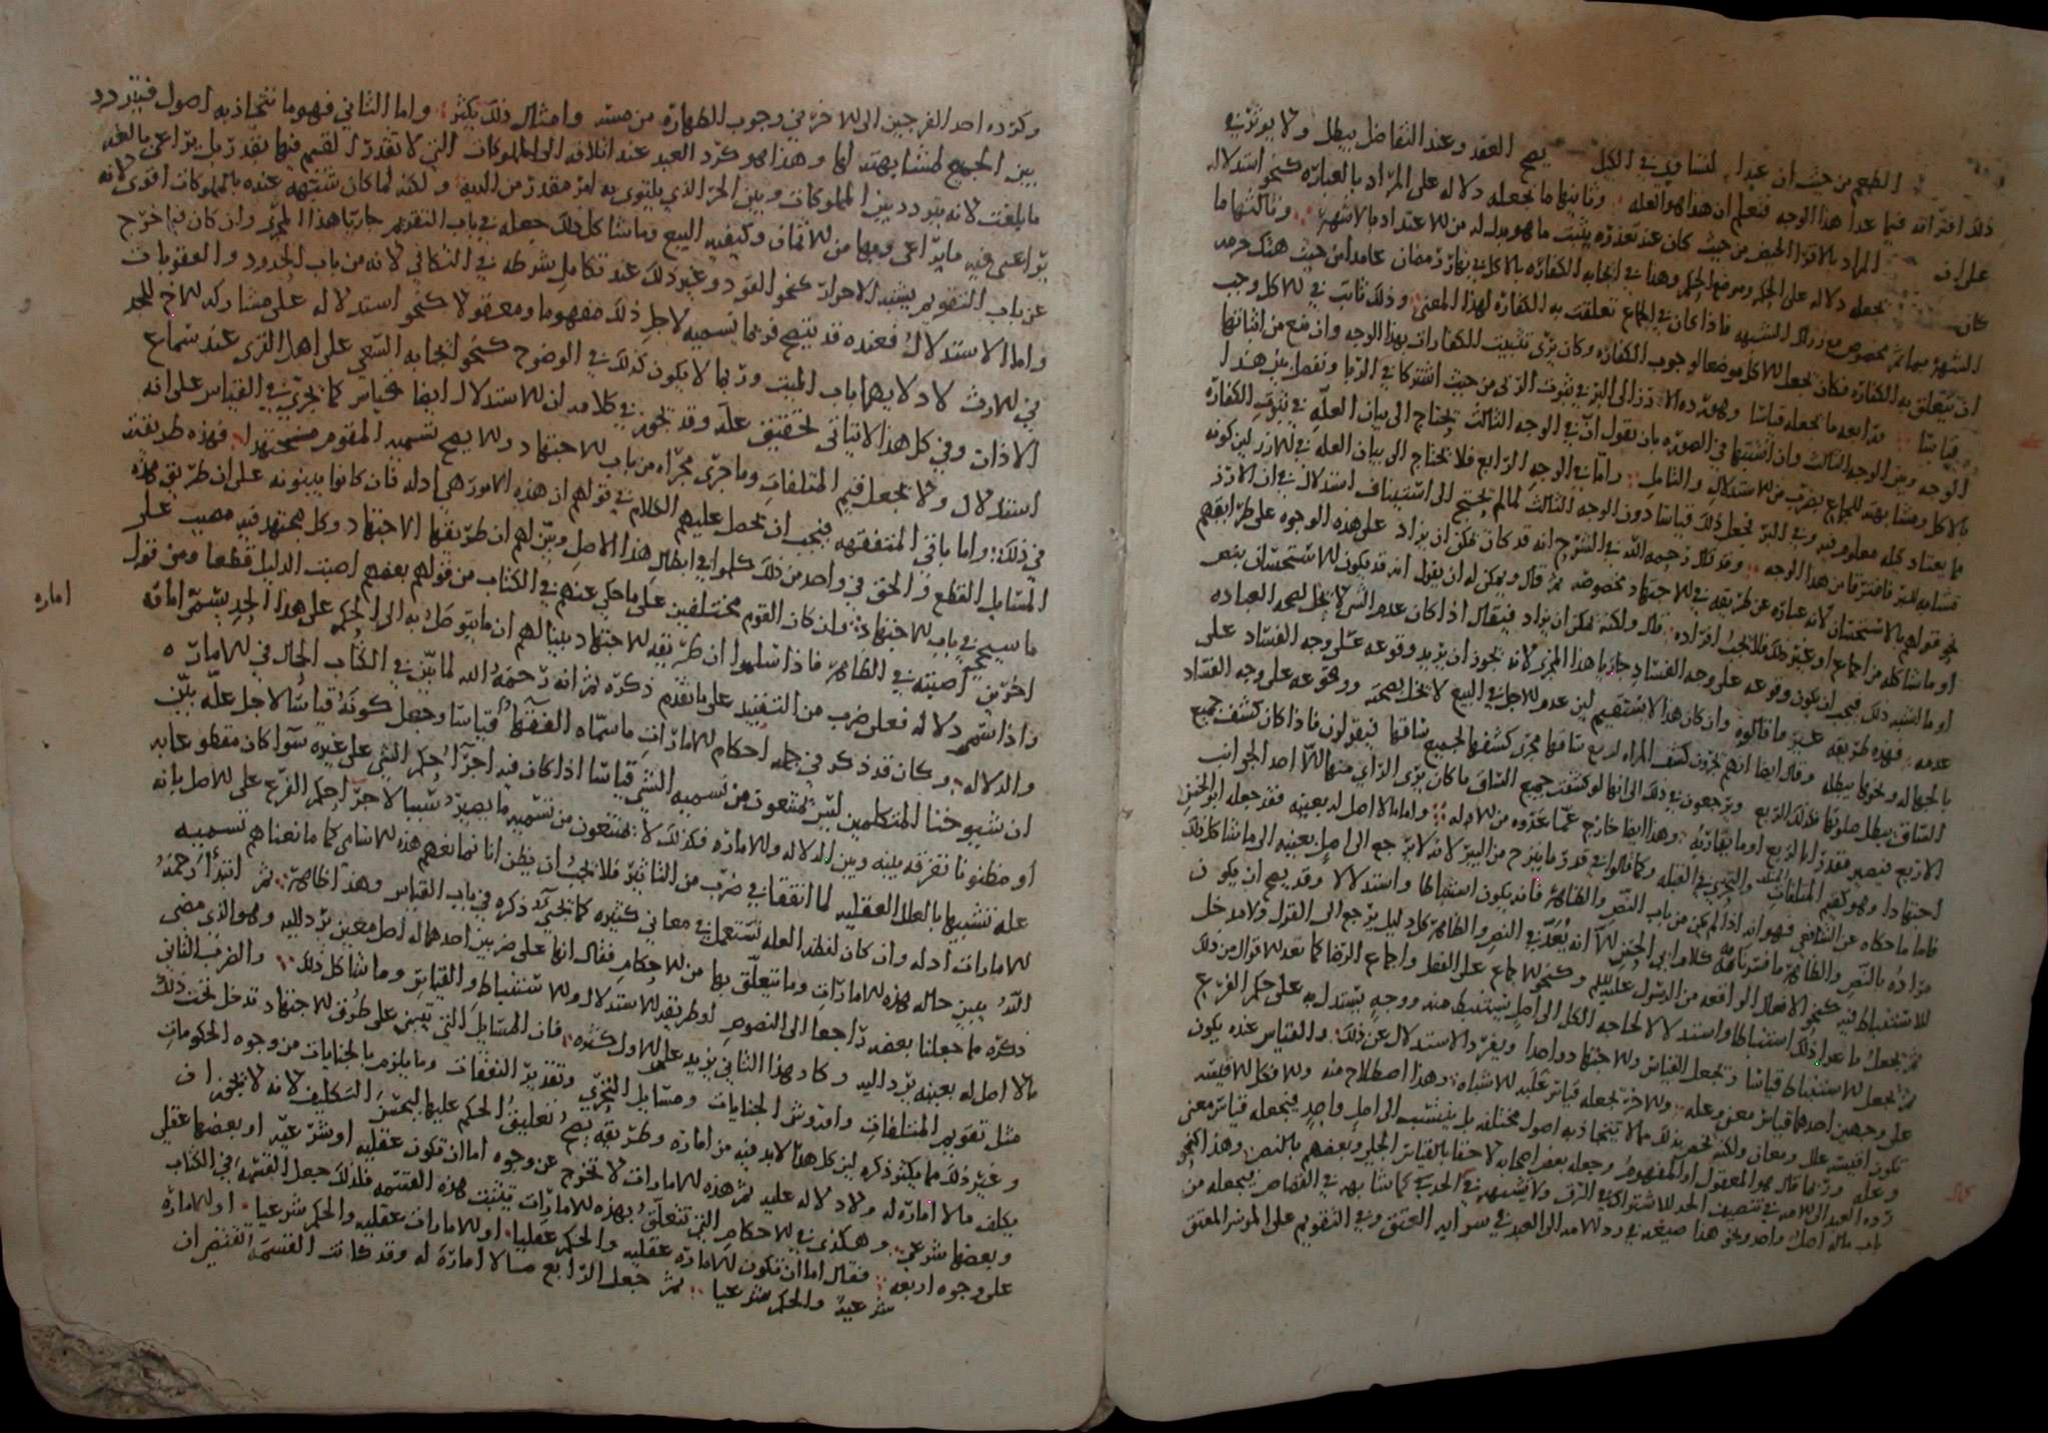 الطعم من حيث ان عند التساوي في الكيل يصح العقد وعند التفاضل يبطل ولا يوثر في
ذلك افتراقه فيما عدا هذا الوجه فتعلم ان هذا هو العله وثانيها ما تجعله دلاله على المراد بالعباره كنحو استدلال
على ان المراد بالاقرا الحيض من حيث كان عند تعذره يثبت ما هو بدل له من الاعتداد بالاشهر وثالثها ما
كان تجعله دلاله على الحكم وموضع الحكم وهنا في ايجابه الكفاره بالاكل في نهار رمضان عامدا من حيث هتك حرمه
الشهر بماثم مخصوص مع زوال الشبهه فاذا كان في الجماع تعلقت به الكفاره لهذا المعنى وذلك ثابت في الاكل وجب
ان تتعلق به الكفاره فكان تجعل الاكل موضعا لوجوب الكفاره وكان يرى تثبيت الكفارات بهذا الوجه وان منع من اثباتها
قياسا ورابعه ما يجعله قياسا وهو رده الارز الى البر في ثبوت الربى من حيث اشتركا في الربا وتفصل بين هذا
الوجه وبين الوجه الثالث وان اشتبها في الصوره بان يقول ان في الوجه الثالث يحتاج الى بيان العله في ثبوت الكفاره
بالاكل ومشابهته للجماع بضرب من الاستدلال والتامل واما في الوجه الرابع فلا يحتاج الى بيان العله في الارز لان كونه
مما يعتاد كيله معلوم فيه وفي البر فجعل ذلك قياسا دون الوجه الثالث لما لم يحتج الى استيناف استدلال في ان الارز
مشابه للبر فافترقا من هذا الوجه وقد قال رحمه الله في الشرح انه قد كان يمكن ان يزاد على هذه الوجوه على طرايقهم
نحو قولهم بالاستحسان لانه عباره عن طريقه في الاجتهاد مخصوصه ثم قال ويمكن له ان يقول انه قد يكون الاستحسان بنص
او ما شاكله من اجماع او غير ذلك فلا يجب افراده قال ولكنه يمكن ان يزاد فيقال اذا كان عدم الشي لا يخل بصحه العباده
او ما اشبه ذلك فيجب ان يكون وقوعه على وجه الفساد جاريا هذا المجرى لانه يجوز ان يزيد وقوعه على وجه الفساد على
عدمه فهذه طريقه غير ما قالوه وان كان هذا لا يستقيم لان عدم الاجل في البيع لا يخل بصحته ووقوعه على وجه الفساد
بالجهاله ونحوها يبطله وقال ايضا انهم يجرون كشف المراه لربع ساقها مجرى كشفها لجميع ساقها فيقولون فاذا كان كشف جميع
الساق يبطل صلوتها فكذلك الربع ويرجعون في ذلك الى انها لو كشفت جميع الساق ما كان يرى الراي منها الا احد الجوانب
الاربع فيصير مقدرا بالربع او ما يقاربه وهذا ايضا خارج عما عدوه من الادله واما ما لا اصل له بعينه فقد جعله ابو الحسن
اجتهادا وهو كقيم المتلفات والتحري في القبله وكما قالوا في قدر ما ينزح من البير لانه لا يرجع الى اصل بعينه الى ما شاكل ذلك
فاما ما حكاه عن الشافعي فهو انه اذا لم يكن من باب النص والظاهر فانه يكون استنباطا واستدلالا وقد يصح ان يكون
مراده بالنص والظاهر ما فسرنا به كلام ابي الحسن الا انه يعد في النص والظاهر كل دليل يرجع الى القول ولا مدخل
للاستنباط فيه كنحو الافعال الواقعه من الرسول عليه السلم وكنحو الاجماع على الفعل واجماع الرضا كما تعد الاقوال من ذلك
ثم يجعل ما عدا ذلك استنباطا واستدلالا لحاجه الكل الى اصل يستنبط منه ووجه يستدل به على حكم الفرع
ثم يجعل الاستنباط قياسا ويجعل القياس والاجتهاد واحدا ويفرد الاستدلال عن ذلك والقياس عنده يكون
على وجهين احدهما قياس معنى وعله والاخر يجعله قياس غلبه الاشباه وهذا اصطلاح منه والا فكل الاقيسه
تكون اقيسه علل ومعان ولكنه يخص بذلك ما لا يتجاذبه اصول مختلفه بل ينتسب الى اصل واحد فيجعله قياس معنى
وعله وربما قال هو المعقول او المفهوم وجعله بعض اصحابه لاحقا بالقياس الجلي وبعضهم بالنص وهذا كنحو
رده العبد الى الامه في تنصيف الحد للاشتراك في الرق ولا يشبهه في الحد شي كما شابهه في القصاص فيجعله من
باب ماله اصل واحد ونحو هذا صيغه في رد الامه الى العبد في سرايه العتق وفي التقويم على الموسر المعتق
وكرده احد الفرجين الى الاخر في وجوب الطهاره من مسه وامثال ذلك يكثر واما الثاني فهو ما تتجاذبه اصول فيتردد
بين الجميع لمشابهته لها وهذا هو كرد العبد عند اتلافه الى المملوكات التي لا تقدر القيم فيها بقدر بل يراعى بالغه
ما بلغت لانه يتردد بين المملوكات وبين الحر الذي يلتوى به امر مقدر من الديه ولكنه لما كان شبهه عنده بالمملوكات اقوى لانه
يراعى فيه ما يراعى فيها من الاثمان وكيفيه البيع وما شاكل ذلك جعله في باب التقويم جاريا هذا المجرى وان كان فيما خرج
عن باب التقويم يشبه الاحرار كنحو القود وغير ذلك عند تكامل شرطه في التكافي لانه من باب الحدود والعقوبات
واما الاستدلال فعنده قد يتضح فربما تسميه لاجل ذلك مفهوما ومعقولا كنحو استدلال على مشاركه الاخ للجد
في الارث لادلايهما باب الميت وربما لا يكون كذلك في الوضوح كنحو ايجابه السعي على اهل القرى عند سماع
الاذان وفي كل هذا لا يتاتى تحقيق عله وقد تجوز في كلامه ان الاستدلال ايضا قياس كما يجري في القياس على انه
استدلال ولا يجعل قيم المتلفات وما جرى مجراه من باب الاجتهاد ولا يصح تسميه المقوم مجتهدا فهذه طريقته
في ذلك واما باقي المتفقهه فيجب ان يحمل عليهم الكلام في قولهم ان هذه الامور هي ادله فان كانوا يبنونه على ان طريق هذه
المسايل القطع والحق في واحد من ذلك كلموا في ابطال هذا الاصل وبين لهم ان طريقها الاجتهاد وكل مجتهد فيه مصيب على
ما سيجي في باب الاجتهاد وان كان القوم مختلفين على ما حكي عنهم في الكتاب من قولهم بعضهم اصبت الدليل قطعا ومن قول
اخرين اصبته في الظاهر فاذا سلموا ان طريقه الاجتهاد بينا لهم ان ما يتوصل به الى الحكم على هذا الحد يسمى اماره
واذا سمي دلاله فعلى ضرب من التقييد على ما تقدم ذكره ثم انه رحمه الله لما بين في الكتاب الحال في الاماره
والدلاله وكان قد ذكر في جمله احكام الامارات ما سماه الفقها قياسا وجعل كونه قياسا لاجل عله بين
ان شيوخنا المتكلمين ليس يمتنعون من تسميه الشي قياسا اذا كان فيه اجرا حكم الشي على غيره سوا كان مقطوعا به
او مظنونا تفرقه بينه وبين الدلاله والاماره فكذلك لا يمتنعون من تسميه ما يصير سببا لاجرا حكم الفرع على الاصل بانه
عله تشبيها بالعلل العقليه لما اتفقا في ضرب من التاثير فلا يجب ان يظن انا نمانعهم هذه الاسامي كما مانعناهم تسميه
الامارات ادله وان كان لفظه العله تستعمل في معاني كثيره كما يجي ذكره في باب القياس وهذا ظاهر ثم ابتدأ رحمه
الله يبين حال هذه الامارات وما يتعلق بها من الاحكام فقال انها على ضربين احدهما له اصل معين يرد اليه وهو الذي مضى
ذكره مما جعلنا بعضه راجعا الى النصوص او طريقه الاستدلال والاستنباط والقياس وما شاكل ذلك والضرب الثاني
ما لا اصل له بعينه يرد اليه وكاد هذا الثاني يزيد على الاول كثره فان المسايل التي تبتني على طرق الاجتهاد تدخل تحت ذلك
مثل تقويم المتلفات واروش الجنايات ومسايل التحري وتقدير النفقات وما يلزم بالجنايات من وجوه الحكومات
وغير ذلك مما يكثر ذكره لان كل هذا لا بد فيه من اماره وطريقه يصح تعليق الحكم عليها ليحسن التكليف لانه لا يجوز ان
يكلف ما لا اماره له ولا دلاله عليه ثم هذه الامارات لا تخرج عن وجوه اما ان تكون عقليه او شرعيه او بعضها عقلي
وبعضها شرعي وهكذى في الاحكام التي تتعلق بهذه الامارات تثبت هذه القسمه فلذلك جعل القسمه في الكتاب
على وجوه اربعه فقال اما ان تكون الاماره عقليه والحكم عقليا او الامارات عقليه والحكم شرعيا او الاماره
شرعيه والحكم شرعيا ثم جعل الرابع ما لا اماره له وقد كانت القسمه تقتضي ان
اماره